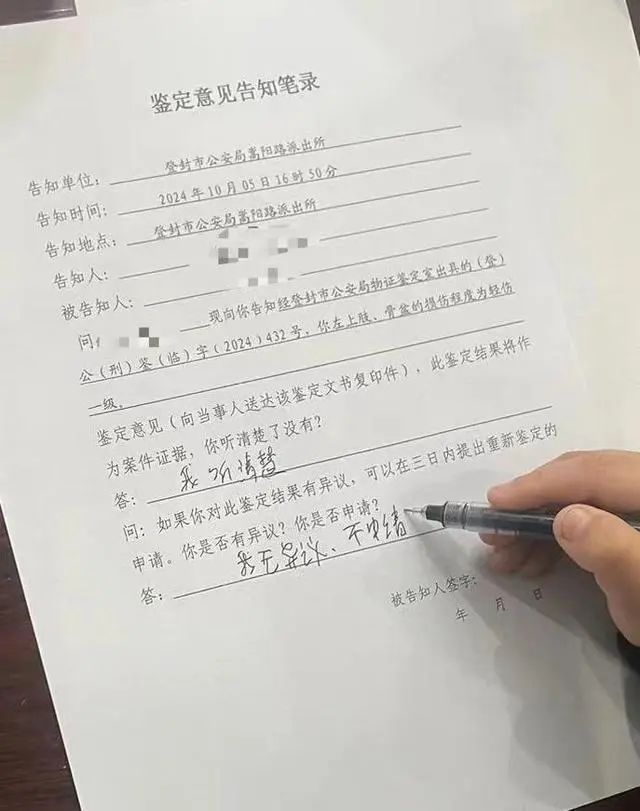 鉴定意见告知笔录
告知单位：登封市公安局嵩阳路派出所
告知时间：2024年10月05日16时50分
告知地点：登封市公安局嵩阳路派出所
告知人：
被告知人：
问： 现向你告知经登封市公安局物证鉴定室出具的（登）
公（刑）鉴（临）字（2024）432号，你左上肢、骨盆的损伤程度为轻伤
一级。
鉴定意见（向当事人送达该鉴定文书复印件），此鉴定结果将作
为案件证据，你听清楚了没有？
答：我听清楚
问：如果你对此鉴定结果有异议，可以在三日内提出重新鉴定的
申请。你是否有异议？你是否申请？
答：我无异议、不申请
被告知人签字：
年 月 日